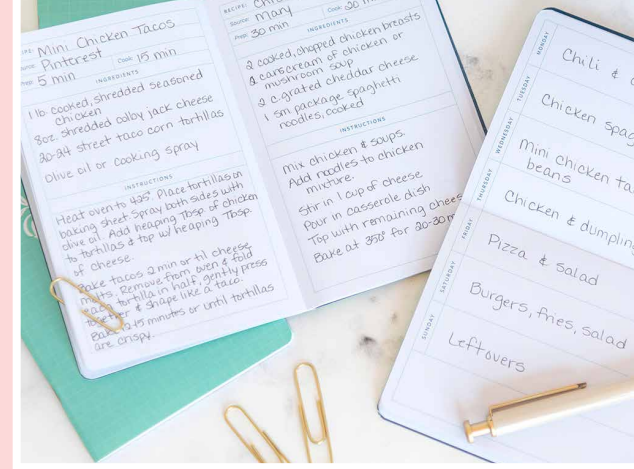 Mini Chicken Tacos
Source: Pinterest
Prep: 5 min Cook: 15 min
INGREDIENTS
1 lb. cooked, shredded seasoned
chicken
8oz. shredded colby jack cheese
20-24 street taco corn tortillas
Olive oil or cooking spray
INSTRUCTIONS
Heat oven to 425°. Place tortillas on
baking sheet. Spray both sides with
olive oil. Add heaping Tbsp. of chicken
to tortillas & top w/ heaping Tbsp.
of cheese.
Bake tacos 2 min or til cheese
melts. Remove from oven & fold
each tortilla in half, gently press
together & shape like a taco.
Bake 12-15 minutes or until tortillas
are crispy.
RECIPE:
Source: Mary Cook: 20
Prep: 30 min
INGREDIENTS
2 cooked, chopped chicken breasts
2 cans cream of chicken or
mushroom soup
2 c. grated cheddar cheese
1 sm. package spaghetti
noodles, cooked
INSTRUCTIONS
Mix chicken & soups.
Add noodles to chicken
mixture.
Stir in 1 cup of cheese.
Pour in casserole dish
Top with remaining chees
Bake at 350° for 20-30 m
MONDAY
Chili &
TUESDAY
Chicken spag
WEDNESDAY
Mini chicken ta
beans
THURSDAY
Chicken & dumpling
FRIDAY
Pizza & salad
SATURDAY
Burgers, fries, salad
SUNDAY
Leftovers